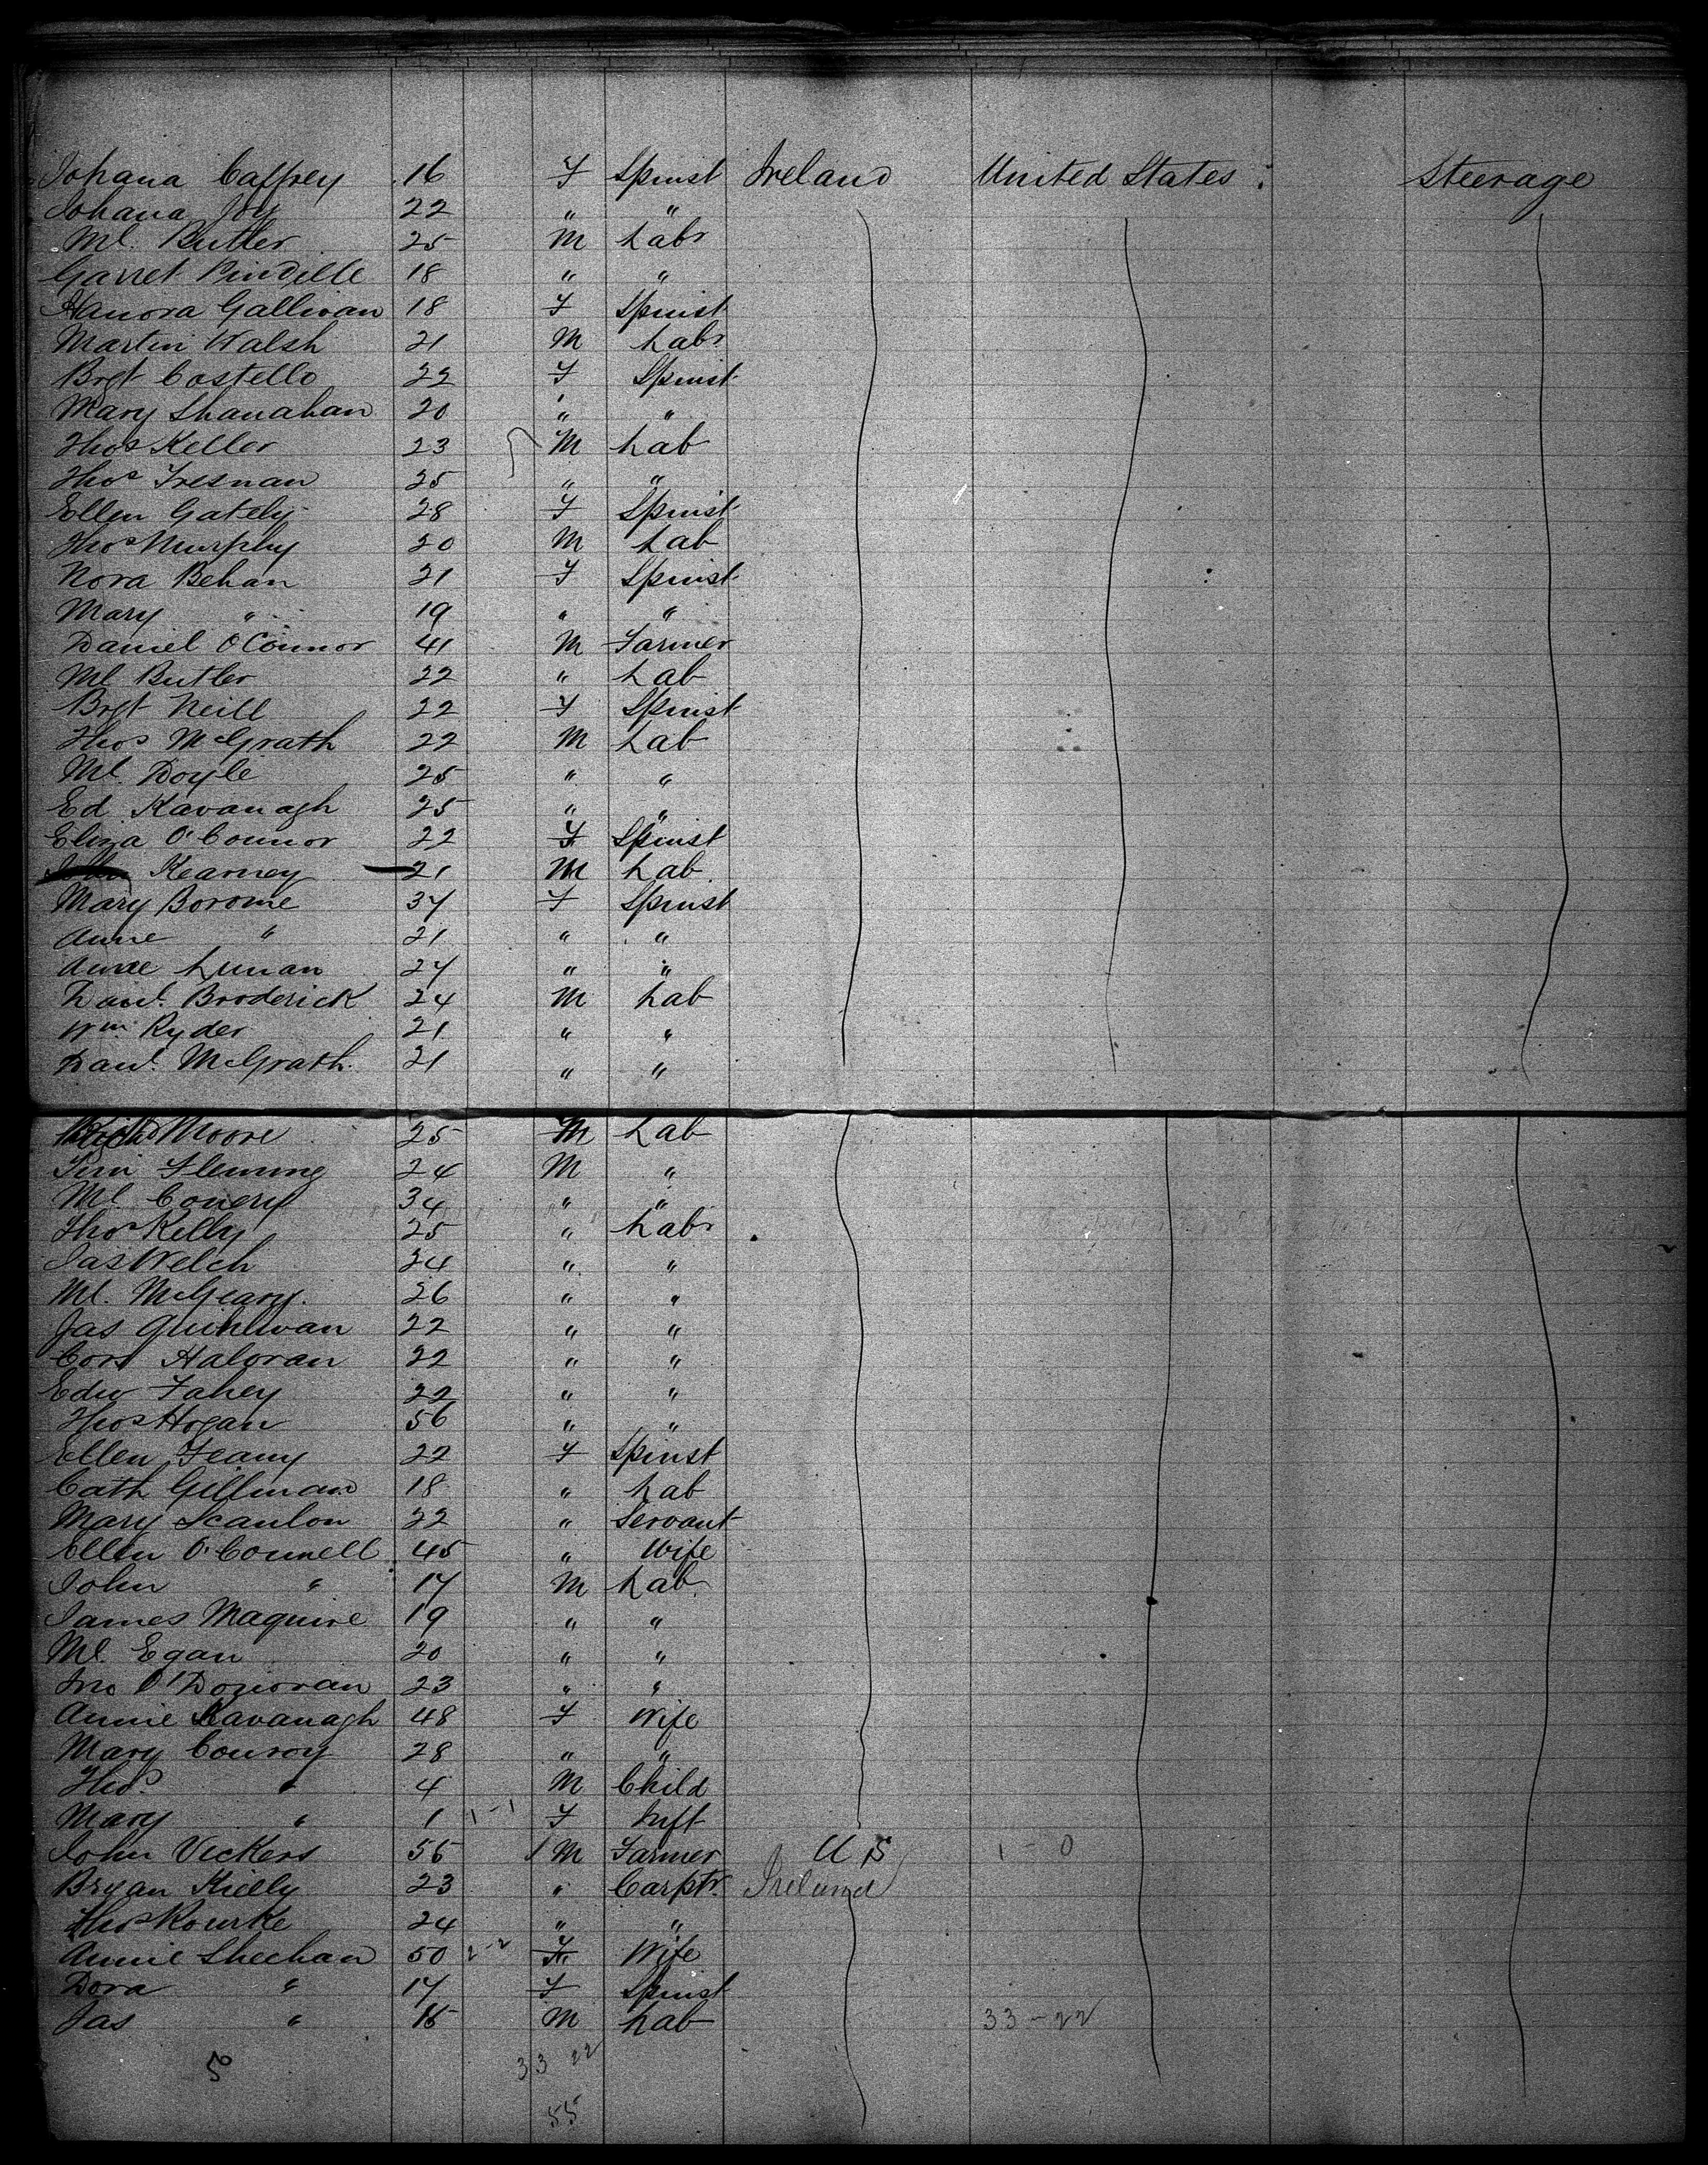 Johana Caffrey 16 F Spinst Ireland United States : Steerage
Johana Joy 22 " "
Ml. Butler 25 M Labr
Garret 18 " "
Hanora Gallivan 18 F Spinst
Martin Walsh 21 M Labr
Brgt Costello 22 F Spinst
Mary Shanahan 20 " "
Thos Keller 23 M Lab
Thos Fresnan 25 " "
Ellen Gately 28 F Spinst
Thos Murphy 20 M Lab
Nora Behan 21 F Spinst
Mary " 19 " "
Daniel O'Connor 41 M Farmer
Ml Butler 22 " Lab
Brgt Neill 22 F Spinst
Thos McGrath 22 M Lab
Ml. Doyle 25 " "
Ed. Kavanagh 25 " "
Eliza O'Connor 22 F Spinst
Kearney 21 M Lab
Mary Borome 37 F Spinst
Anne " 21 " "
Annie Lunan 27 " "
Danl. Broderick 24 M Lab
Wm. Ryder 21 " "
Danl. McGrath 21 " "
Moore 25 M Lab
Tim Fleming 24 M "
Ml. Conery 34 " "
Thos Kelly 25 " Labr
Jas Welch 24 " "
Ml. McGeary 26 " "
Jas Quinlivan 22 " "
Cors Haloran 22 " "
Edw Fahey 22 " "
Thos Hogan 56 " "
Ellen Feany 22 F Spinst
Cath Gillman 18 " Lab
Mary Scanlon 22 " Servant
Ellen O'Connell 45 " Wife
John " 17 M Lab
James Maguire 19 " "
Ml. Egan 20 " "
Jno O'Donovan 23 " "
Annie Kavanagh 48 F Wife
Mary Conroy 28 " "
Thos. " 4 M Child
Mary " 1 1-1 F Inft
John Vickers 55 1 M Farmer U S 1 - 0
Bryan Kielly 23 " Carptr. Ireland
Thos Rourke 24 " "
Annie Sheehan 50 2-2 F Wife
Dora " 17 F Spinst
Jas " 15 M Lab 33-22
5 33 22
55